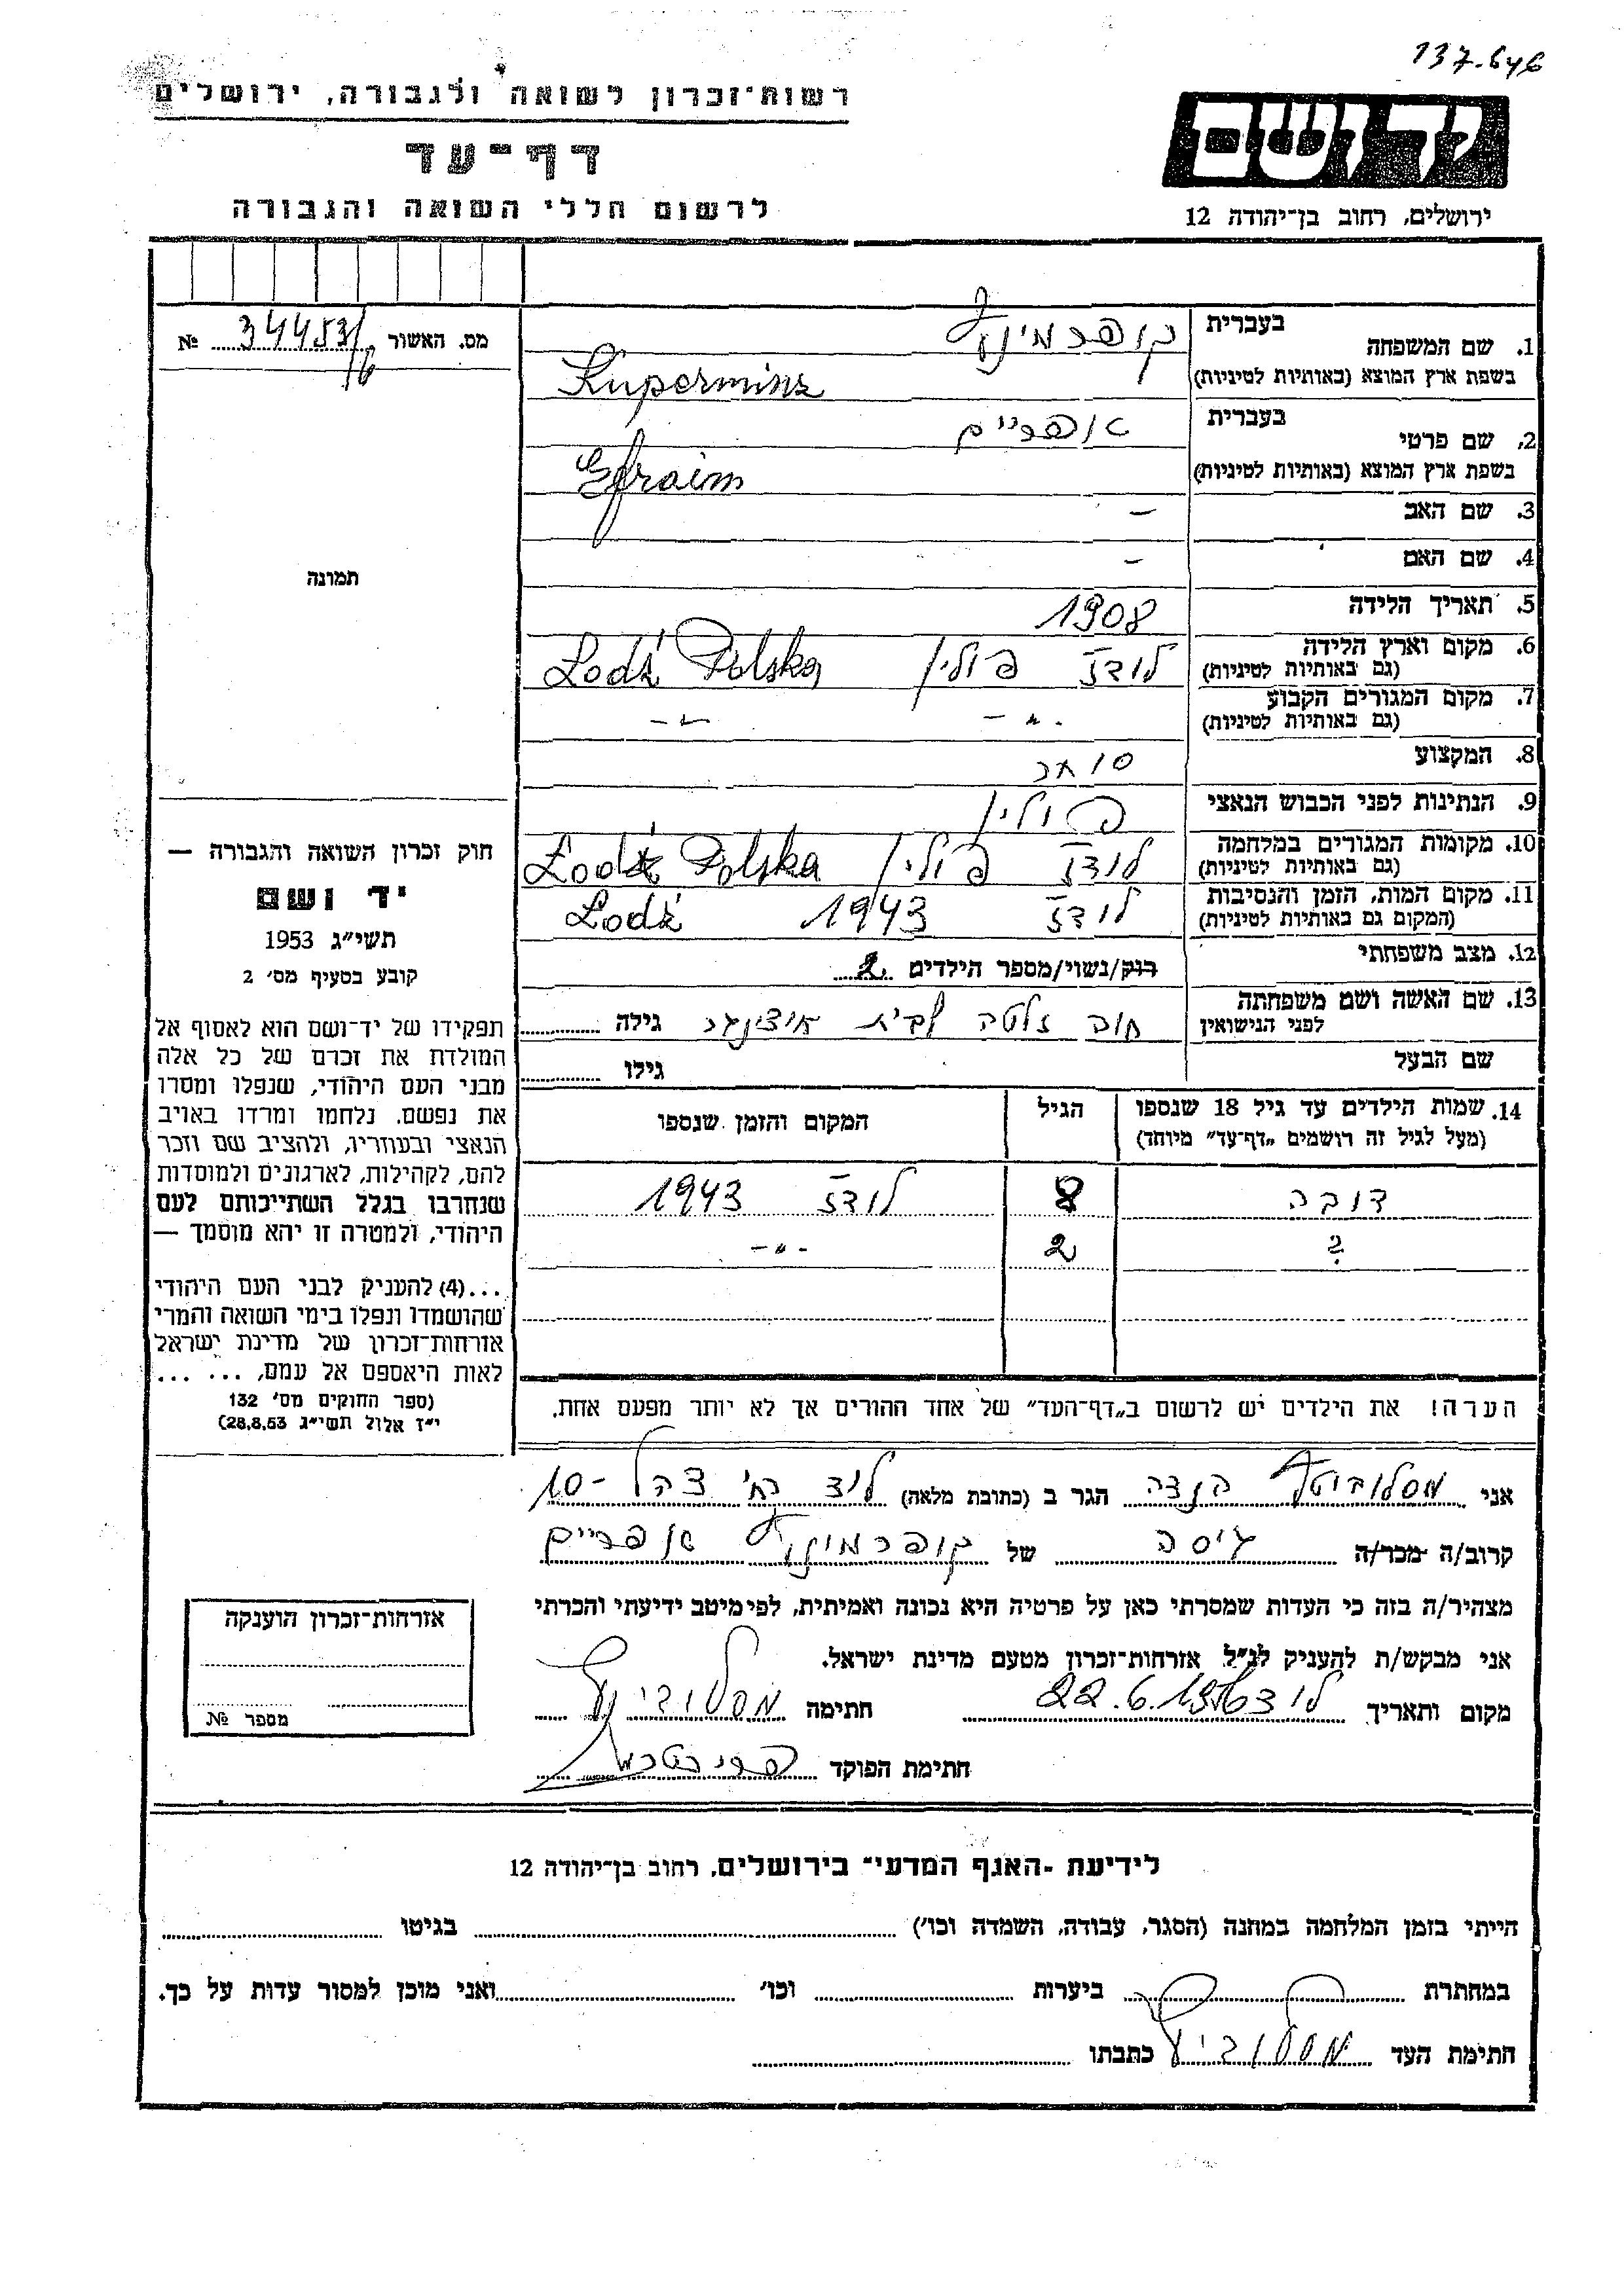 137.646
רשות־זכרון לשואה ולגבורה, ירושלים
דף־עד
לרשום חללי השואה והגבורה
ידושם
ירושלים, רחוב בן־יהודה 12
מס. האשור 34453/6 №
תמונה
1. שם המשפחה
בעברית קופרמינץ
בשפת ארץ המוצא (באותיות לטיניות) Kuperminz
2. שם פרטי
בעברית אפריים
בשפת ארץ המוצא (באותיות לטיניות) Efraim
3. שם האב —
4. שם האם —
5. תאריך הלידה 1908
6. מקום וארץ הלידה לודז פולין Lodź Polska
(גם באותיות לטיניות)
7. מקום המגורים הקבוע -"- -"-
(גם באותיות לטיניות)
8. המקצוע סוחר
9. הנתינות לפני הכבוש הנאצי פולין
10. מקומות המגורים במלחמה לודז פולין Lodź Polska
(גם באותיות לטיניות)
11. מקום המות, הזמן והנסיבות לודז 1943 Lodź
(המקום גם באותיות לטיניות)
12. מצב משפחתי רוק/נשוי/מספר הילדים 2
13. שם האשה ושם משפחתה חוה זלטה לבית
לפני הנישואין גילה
שם הבעל גילו
14. שמות הילדים עד גיל 18 שנספו
(מעל לגיל זה רושמים „דף־עד" מיוחד)
הגיל
המקום והזמן שנספו
דובה 8 לודז 1943
? 2 -"-
הערה! את הילדים יש לרשום ב„דף־העד" של אחד ההורים אך לא יותר מפעם אחת.
חוק זכרון השואה והגבורה —
יד ושם
תשי״ג 1953
קובע בסעיף מס׳ 2
תפקידו של יד־ושם הוא לאסוף אל
המולדת את זכרם של כל אלה
מבני העם היהודי, שנפלו ומסרו
את נפשם. נלחמו ומרדו באויב
הנאצי ובעוזריו, ולהציב שם וזכר
להם, לקהילות, לארגונים ולמוסדות
שנחרבו בגלל השתייכותם לעם
היהודי, ולמטרה זו יהא מוסמך —
...(4) להעניק לבני העם היהודי
שהושמדו ונפלו בימי השואה והמרי
אזרחות־זכרון של מדינת ישראל
לאות היאספם אל עמם, ... ...
(ספר החוקים מס׳ 132
י״ז אלול תשי״ג 28.8.53)
אני מסלוביץ הנדה הגר ב (כתובת מלאה) לוד רח׳ צהל 10-
קרוב/ה מכר/ה גיסה של קופרמינץ אפריים
מצהיר/ה בזה כי העדות שמסרתי כאן על פרטיה היא נכונה ואמיתית, לפי מיטב ידיעתי והכרתי
אני מבקש/ת להעניק לנ״ל אזרחות־זכרון מטעם מדינת ישראל.
מקום ותאריך לוד 22.6.1956 חתימה מסלוביץ
חתימת הפוקד
אזרחות־זכרון הוענקה
מספר №
לידיעת „האגף המדעי" בירושלים, רחוב בן־יהודה 12
הייתי בזמן המלחמה במחנה (הסגר, עבודה, השמדה וכו׳) בגיטו
במחתרת ביערות וכו׳ ואני מוכן למסור עדות על כך.
חתימת העד מסלוביץ כתבתו